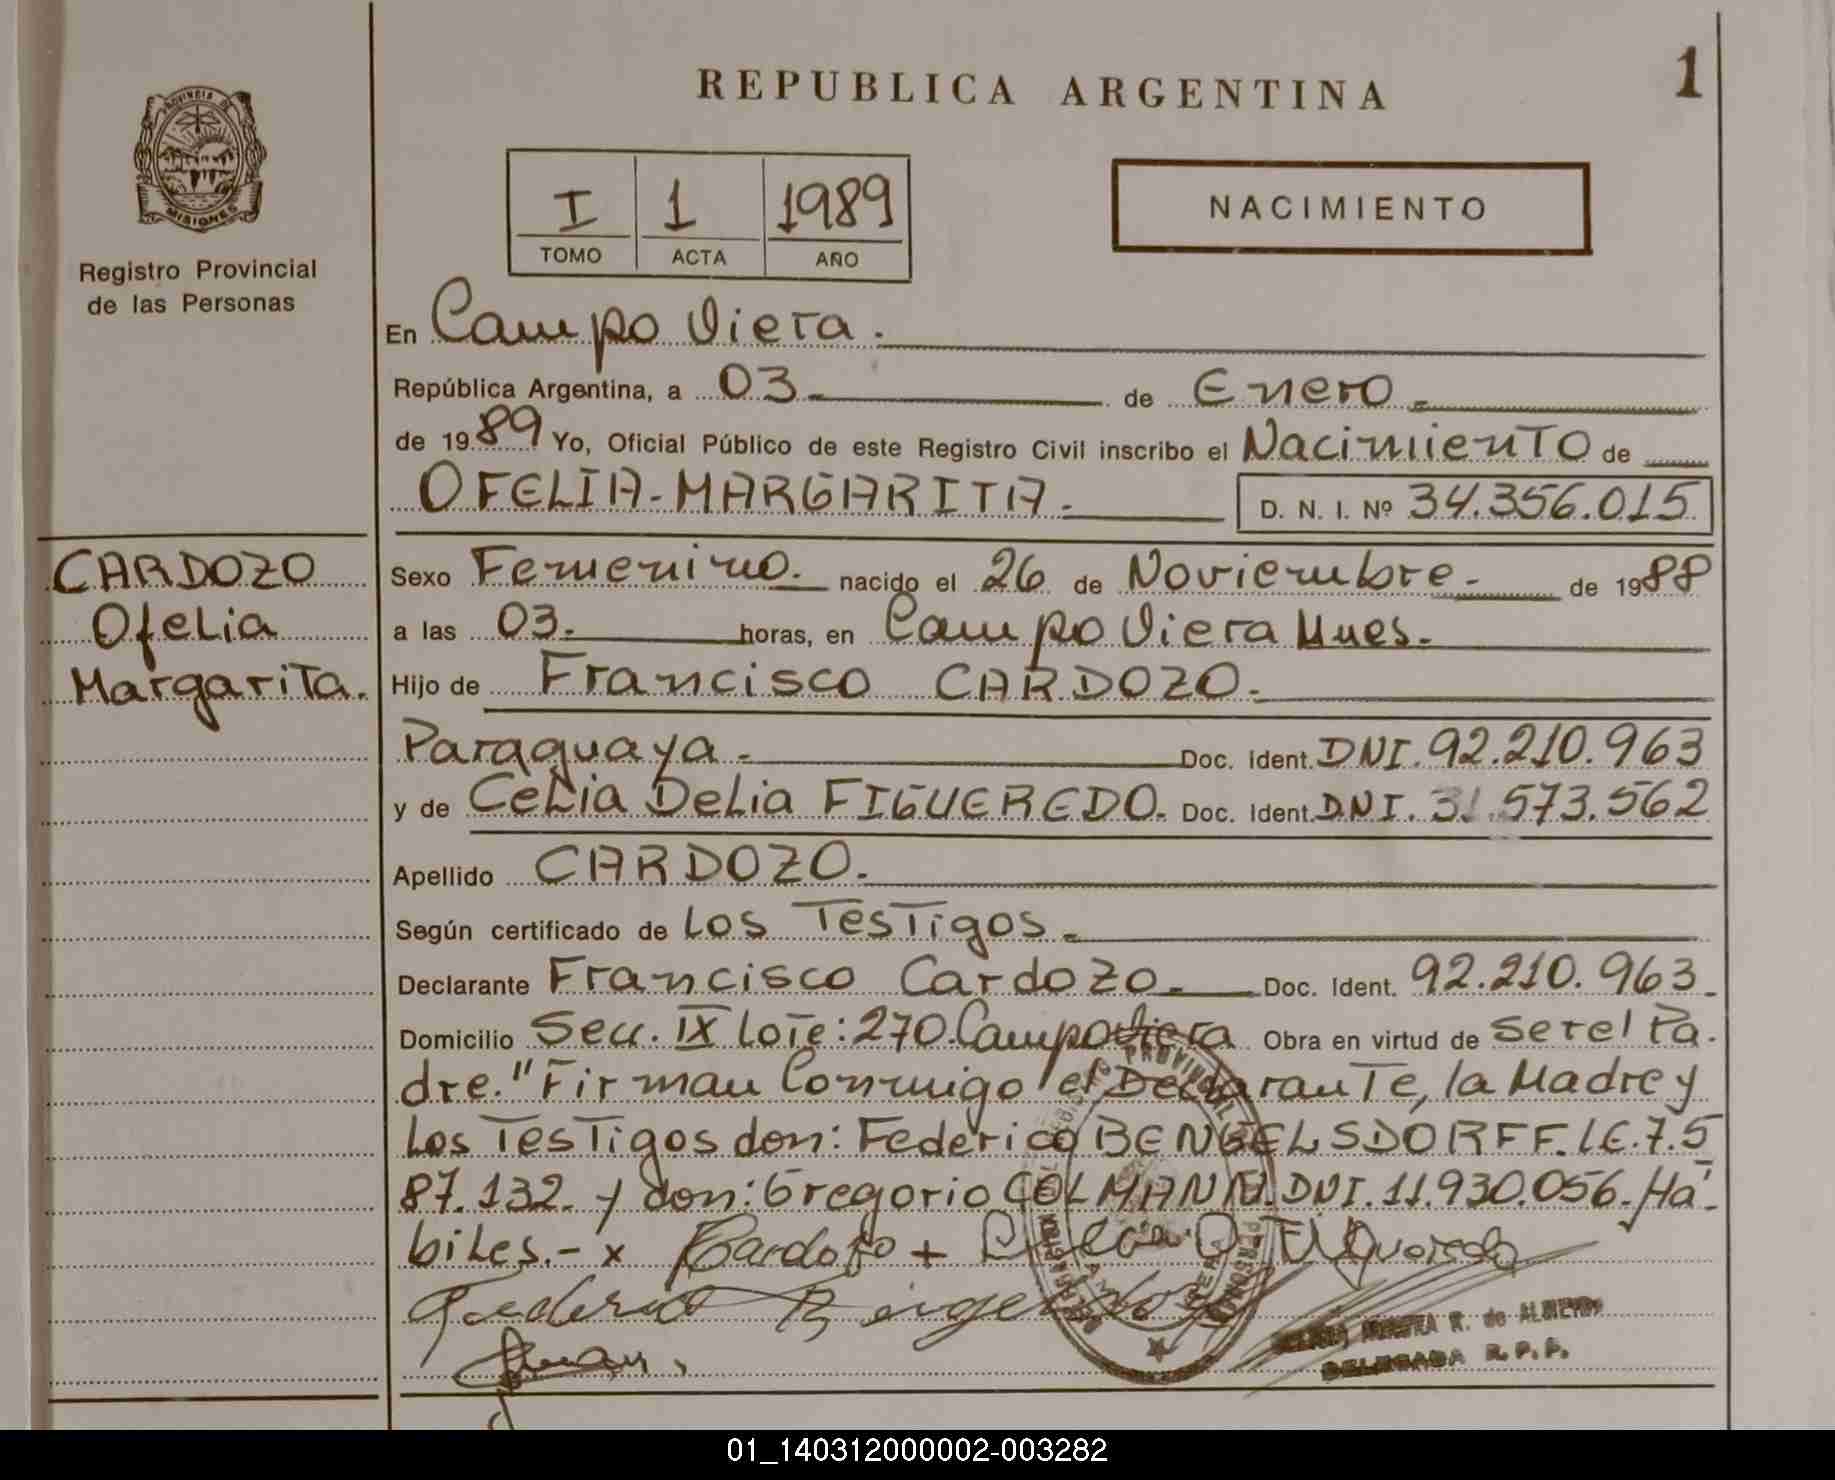 REPUBLICA ARGENTINA
1
PROVINCIA DE
MISIONES
Registro Provincial
de las Personas
I 1 1989
TOMO ACTA AÑO
NACIMIENTO
En Campo Viera.
República Argentina, a 03 de Enero.
de 1989 Yo, Oficial Público de este Registro Civil inscribo el Nacimiento de
OFELIA-MARGARITA. D. N. I. Nº 34.356.015
CARDOZO
Ofelia
Margarita.
Sexo Femenino. nacido el 26 de Noviembre. de 1988
a las 03. horas, en Campo Viera Mnes.
Hijo de Francisco CARDOZO.
Paraguaya. Doc. Ident. DNI. 92.210.963
y de Celia Delia FIGUEREDO. Doc. Ident. DNI. 31.573.562
Apellido CARDOZO.
Según certificado de Los Testigos.
Declarante Francisco Cardozo. Doc. Ident. 92.210.963.
Domicilio Secc. IX Lote: 270. Campo Viera Obra en virtud de Ser el Pa-
dre." Firman Conmigo el Declarante, la Madre y
Los Testigos don: Federico BENGELSDORFF. LE. 7.5
87.132. y don: Gregorio COLMANN. DNI. 11.930.056. Há-
biles.- x Cardozo + Figueredo
Federico
R. de ALMEIDA
DELEGADA R.P.P.
01_140312000002-003282